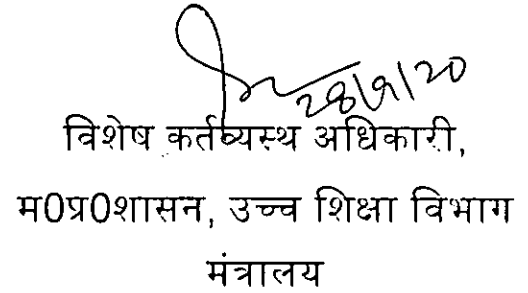 28/9/20
विशेष कर्तव्यस्थ अधिकारी,
म0प्र0शासन, उच्च शिक्षा विभाग
मंत्रालय